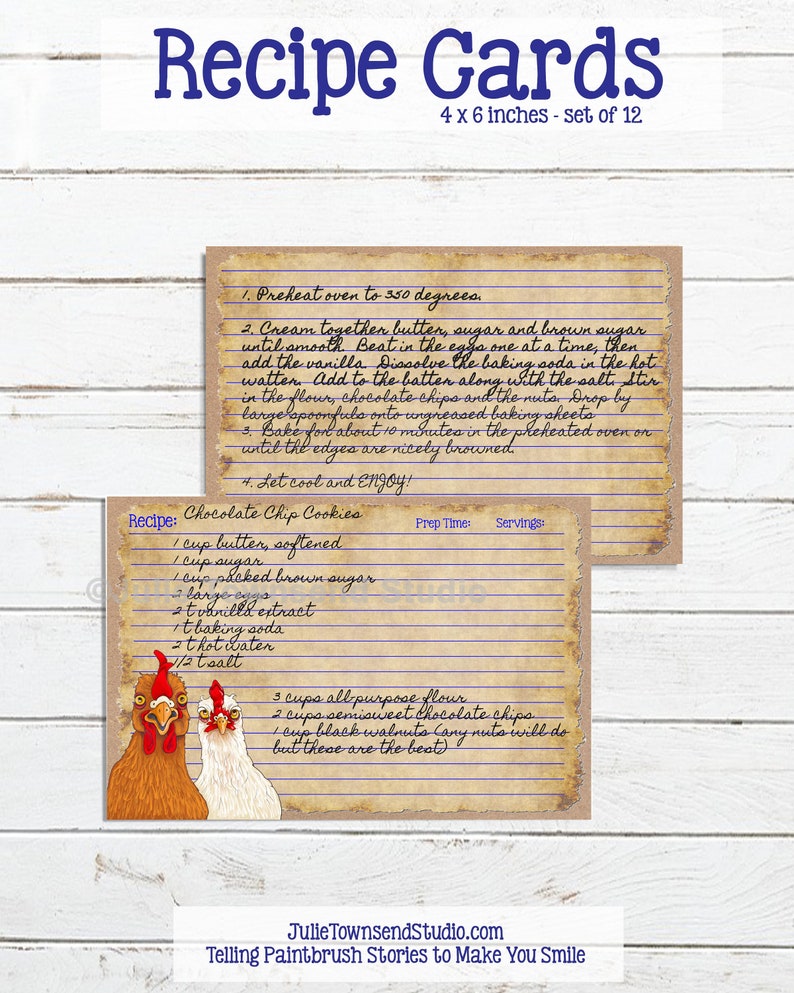 Recipe Cards
4 x 6 inches - set of 12
1. Preheat oven to 350 degrees.
2. Cream together butter, sugar and brown sugar
until smooth. Beat in the eggs one at a time, then
add the vanilla. Dissolve the baking soda in the hot
watter. Add to the batter along with the salt. Stir
in the flour, chocolate chips and the nuts. Drop by
large spoonfuls onto ungreased baking sheets
3. Bake for about 10 minutes in the preheated oven or
until the edges are nicely browned.
4. Let cool and ENJOY!
Recipe: Chocolate Chip Cookies Prep Time: Servings:
1 cup butter, softened
1 cup sugar
1 cup packed brown sugar
© Julie Townsend Studio
2 large eggs
2 t vanilla extract
1 t baking soda
2 t hot water
1/2 t salt
3 cups all-purpose flour
2 cups semisweet chocolate chips
1 cup black walnuts (any nuts will do
but these are the best)
JulieTownsendStudio.com
Telling Paintbrush Stories to Make You Smile